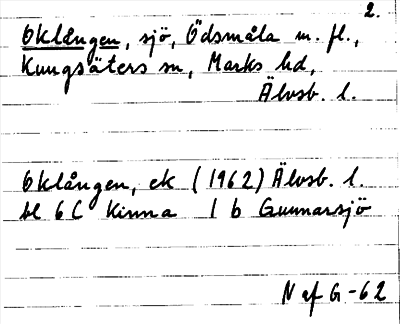 2.
Oklången, sjö, Ödsmåla m. fl.,
Kungsäters sn, Marks hd,
Älvsb. l.
Oklången, ek (1962) Älvsb. l.
bl 6C Kinna 1 b Gunnarsjö
N af G-62